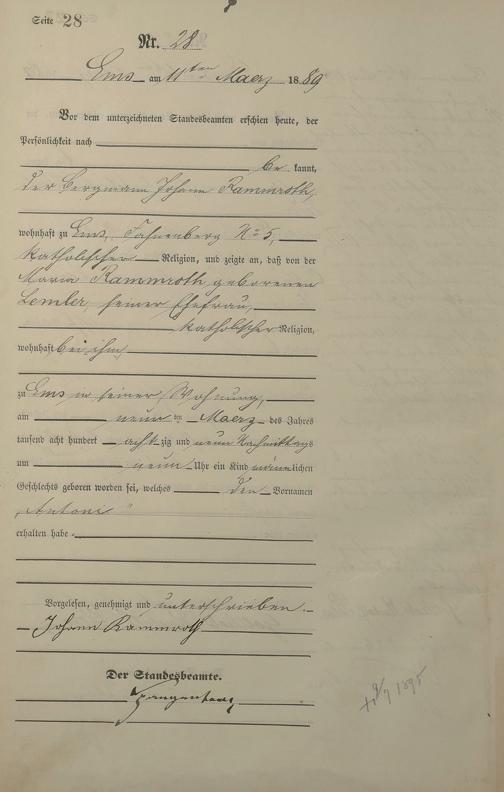 Seite 28
Nr. 28
Ems am 11ten Maerz 1889
Vor dem unterzeichneten Standesbeamten erschien heute, der
Persönlichkeit nach
be kannt,
der Bergmann Johann Rammroth,
wohnhaft zu Ems, Fahnenberg No 5,
katholischer Religion, und zeigte an, daß von der
Maria Rammroth geborenen
Lemler, seiner Ehefrau,
katholischer Religion,
wohnhaft bei ihm,
zu Ems in seiner Wohnung,
am neun ten Maerz des Jahres
tausend acht hundert acht zig und neun Nachmittags
um neun Uhr ein Kind männlichen
Geschlechts geboren worden sei, welches den Vornamen
„Anton“
erhalten habe
Vorgelesen, genehmigt und unterschrieben.
Johann Rammroth
Der Standesbeamte.
Spangenberg
1895